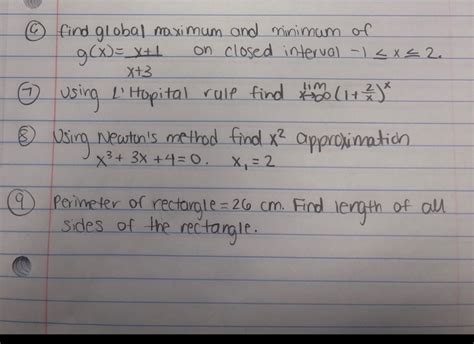 ⑥ find global maximum and minimum of
g(x)= x+1/x+3 on closed interval -1 ≤ x ≤ 2.
⑦ Using L'Hopital rule find lim x→∞ (1+2/x)^x
⑧ Using Newton's method find x² approximation
x³+ 3x +4=0. x₁=2
⑨ Perimeter of rectangle=26 cm. Find length of all
sides of the rectangle.